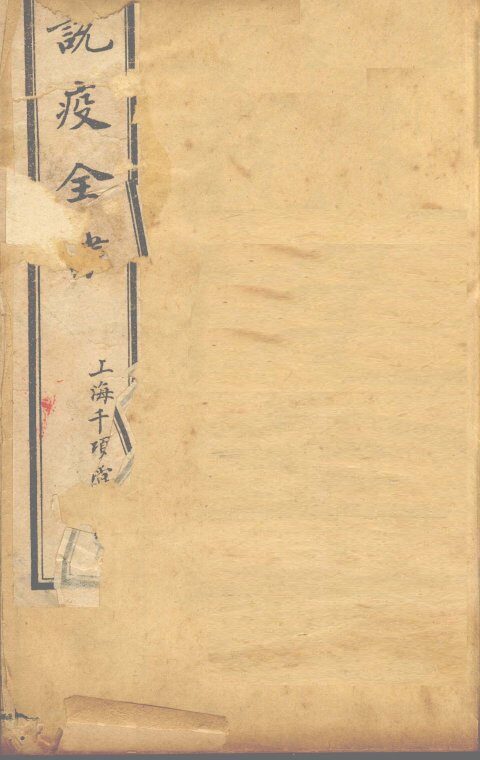 説疫全
上海千頃堂